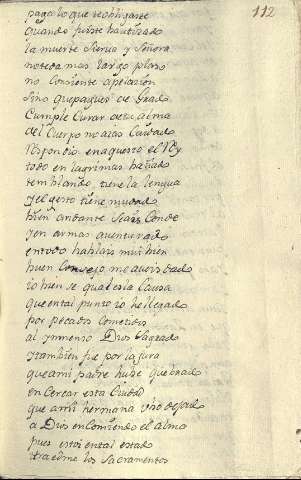 112
paga lo que te obligaste
quando fuiste bautizado
la muerte sierva y señora
no te da mas largo plazo
no consiente apelacion
sino que pagues de grado
cumple curar de tu alma
del cuerpo no aias cuidado
Respondio en aquesto el Rey
todo en lagrimas bañado
temblando tiene la lengua
y el gesto tiene mudado
bien andante seais Conde
y en armas aventurado
en todo hablais mui bien
buen Consejo me aueis dado
io bien se qual es la Causa
que en tal punto io he llegado
por pecados cometidos
al ynmenso Dios Sagrado
y tambien fue por la jura
que a mi padre hube quebrado
en cercar esta Ciudad
que a mi hermana uvo dejado
a Dios encomiendo el alma
pues estoi en tal estado
traedme los Sacramentos